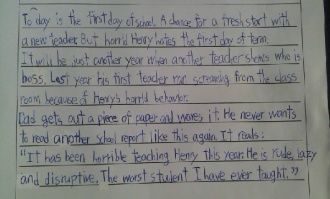 To day is the first day of school. A chance for a fresh start with
a new teacher. But horrid Henry hates the first day of term.
It will be just another year when another teacher shows who is
boss. Last year his first teacher ran screaming from the class
room because of Henry's horrid behavior.
Dad gets out a piece of paper and waves it. He never wants
to read another school report like this again. It reads:
"It has been horrible teaching Henry this year. He is rude, lazy
and disruptive. The worst student I have ever taught."